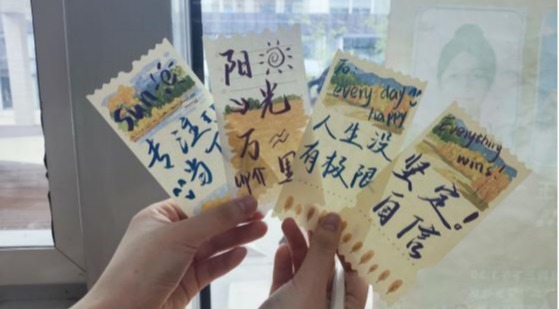 sun
专注
当下
阳
光
万
里
To
every day
happy
人生没
有极限
Everything
wins!
坚定!
自信